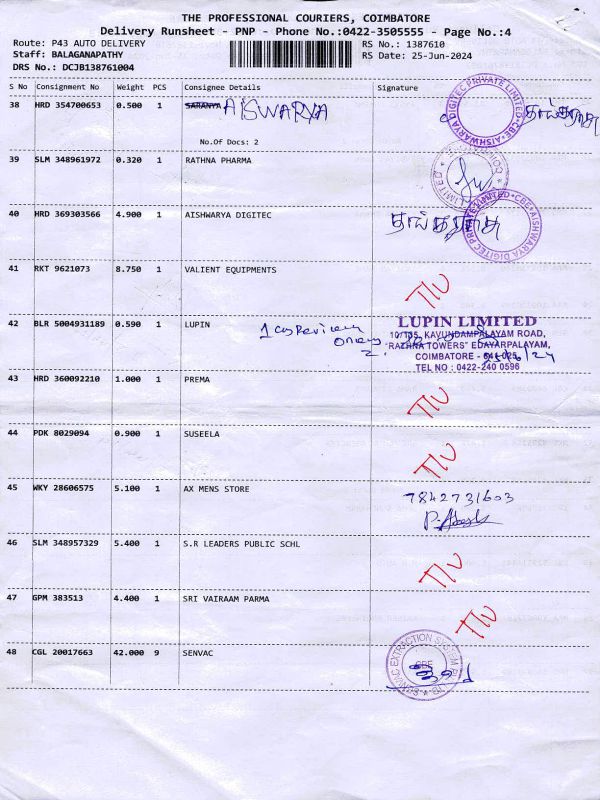 THE PROFESSIONAL COURIERS, COIMBATORE
Delivery Runsheet - PNP - Phone No.:0422-3505555 - Page No.:4
Route: P43 AUTO DELIVERY
Staff: BALAGANAPATHY
DRS No.: DCJB138761004
RS No.: 1387610
RS Date: 25-Jun-2024
S No Consignment No Weight PCS Consignee Details Signature
38 HRD 354700653 0.500 1 SARANYA AISWARYA
No.Of Docs: 2
AISHWARYA DIGITEC PRIVATE LIMITED CBE
39 SLM 348961972 0.320 1 RATHNA PHARMA
LIMITED
40 HRD 369303566 4.900 1 AISHWARYA DIGITEC
AISHWARYA DIGITEC PRIVATE LIMITED CBE
41 RKT 9621073 8.750 1 VALIENT EQUIPMENTS
42 BLR 5004931189 0.590 1 LUPIN
LUPIN LIMITED
10/105, KAVUNDAMPALAYAM ROAD,
"RATHNA TOWERS" EDAYARPALAYAM,
COIMBATORE - 641 025.
TEL NO : 0422-240 0596
43 HRD 360092210 1.000 1 PREMA
44 PDK 8029094 0.900 1 SUSEELA
45 WKY 28606575 5.100 1 AX MENS STORE
7842731603
46 SLM 348957329 5.400 1 S.R LEADERS PUBLIC SCHL
47 GPM 383513 4.400 1 SRI VAIRAAM PARMA
48 CGL 20017663 42.000 9 SENVAC
EXTRACTION SYSTEM
CBE